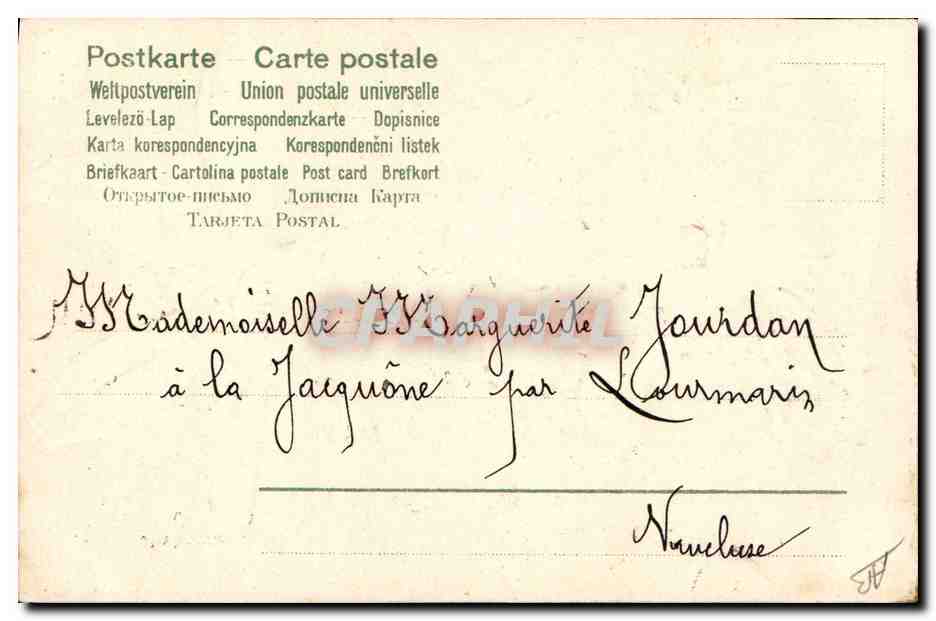 Postkarte — Carte postale
Weltpostverein — Union postale universelle
Levelező-Lap — Correspondenzkarte — Dopisnice
Karta korespondencyjna — Korespondenčni listek
Briefkaart - Cartolina postale — Post card — Brefkort
Открытое-письмо — Дописна Карта
TARJETA POSTAL
Mademoiselle Marguerite Jourdan
à la Jacquône par Lourmarin
Vaucluse
CPAPHIL
AB